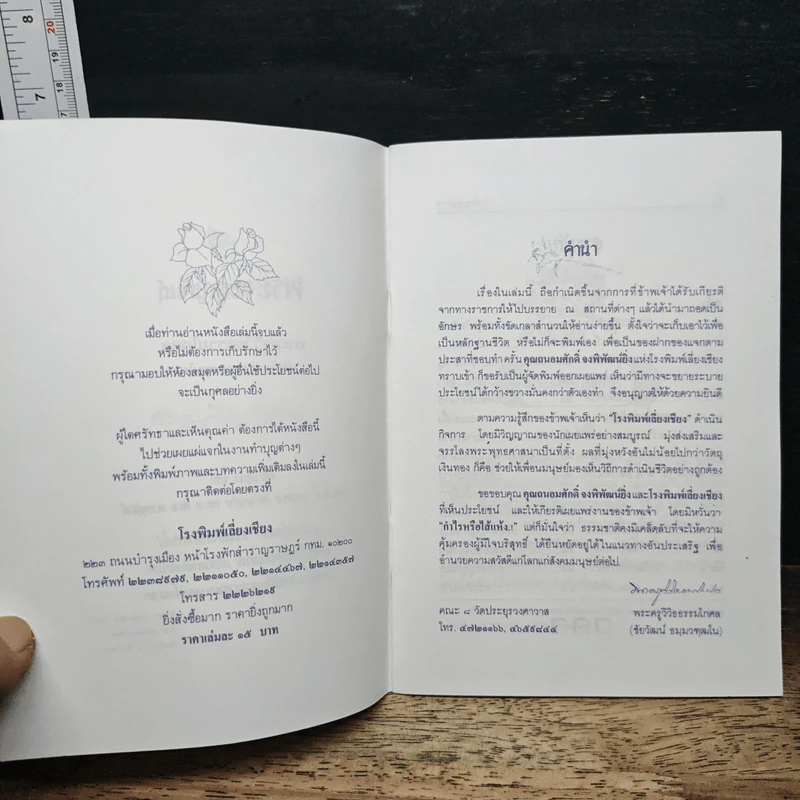 8
7
20
19
18
17
เมื่อท่านอ่านหนังสือเล่มนี้จบแล้ว
หรือไม่ต้องการเก็บรักษาไว้
กรุณามอบให้ห้องสมุดหรือผู้อื่นใช้ประโยชน์ต่อไป
จะเป็นกุศลอย่างยิ่ง
ผู้ใดศรัทธาและเห็นคุณค่า ต้องการได้หนังสือนี้
ไปช่วยเผยแผ่แจกในงานทำบุญต่างๆ
พร้อมทั้งพิมพ์ภาพและบทความเพิ่มเติมลงในเล่มนี้
กรุณาติดต่อโดยตรงที่
โรงพิมพ์เลี่ยงเชียง
๒๒๓ ถนนบำรุงเมือง หน้าโรงพักสำราญราษฎร์ กทม. ๑๐๒๐๐
โทรศัพท์ ๒๒๓๘๙๗๙, ๒๒๑๑๐๕๐, ๒๒๑๔๔๖๗, ๒๒๑๔๓๕๗
โทรสาร ๒๒๒๖๒๑๙
ยิ่งสั่งซื้อมาก ราคายิ่งถูกมาก
ราคาเล่มละ ๑๕ บาท
คำนำ
เรื่องในเล่มนี้ ถือกำเนิดขึ้นจากการที่ข้าพเจ้าได้รับเกียรติ
จากทางราชการให้ไปบรรยาย ณ สถานที่ต่างๆ แล้วได้นำมาถอดเป็น
อักษร พร้อมทั้งขัดเกลาสำนวนให้อ่านง่ายขึ้น ตั้งใจว่าจะเก็บเอาไว้เพื่อ
เป็นหลักฐานชีวิต หรือไม่ก็จะพิมพ์เอง เพื่อเป็นของฝากของแจกตาม
ประสาที่ชอบทำ ครั้น คุณถนอมศักดิ์ จงพิพัฒน์ยิ่ง แห่งโรงพิมพ์เลี่ยงเชียง
ทราบเข้า ก็ขอรับเป็นผู้จัดพิมพ์ออกเผยแพร่ เห็นว่ามีทางจะขยายระบาย
ประโยชน์ได้กว้างขวางมั่นคงกว่าตัวเองทำ จึงอนุญาตให้ด้วยความยินดี
ตามความรู้สึกของข้าพเจ้าเห็นว่า "โรงพิมพ์เลี่ยงเชียง" ดำเนิน
กิจการ โดยมีวิญญาณของนักเผยแพร่อย่างสมบูรณ์ มุ่งส่งเสริมและ
จรรโลงพระพุทธศาสนาเป็นที่ตั้ง ผลที่มุ่งหวังอันไม่น้อยไปกว่าวัตถุ
เงินทอง ก็คือ ช่วยให้เพื่อนมนุษย์มองเห็นวิถีการดำเนินชีวิตอย่างถูกต้อง
ขอขอบคุณ คุณถนอมศักดิ์ จงพิพัฒน์ยิ่ง และโรงพิมพ์เลี่ยงเชียง
ที่เห็นประโยชน์ และให้เกียรติเผยแพร่งานของข้าพเจ้า โดยมิหวั่นว่า
"กำไรหรือไส้แห้ง.!" แต่ก็มั่นใจว่า ธรรมชาติคงมีเคล็ดลับที่จะให้ความ
คุ้มครองผู้มีใจบริสุทธิ์ ได้ยืนหยัดอยู่ได้ในแนวทางอันประเสริฐ เพื่อ
อำนวยความสวัสดีแก่โลกแก่สังคมมนุษย์ต่อไป.
คณะ ๘ วัดประยุรวงศาวาส
โทร. ๔๗๒๑๑๖๖, ๔๖๕๙๘๔๔
พระครูวิวิธธรรมโกศล
(ชัยวัฒน์ ธมฺมวฑฺฒโน)